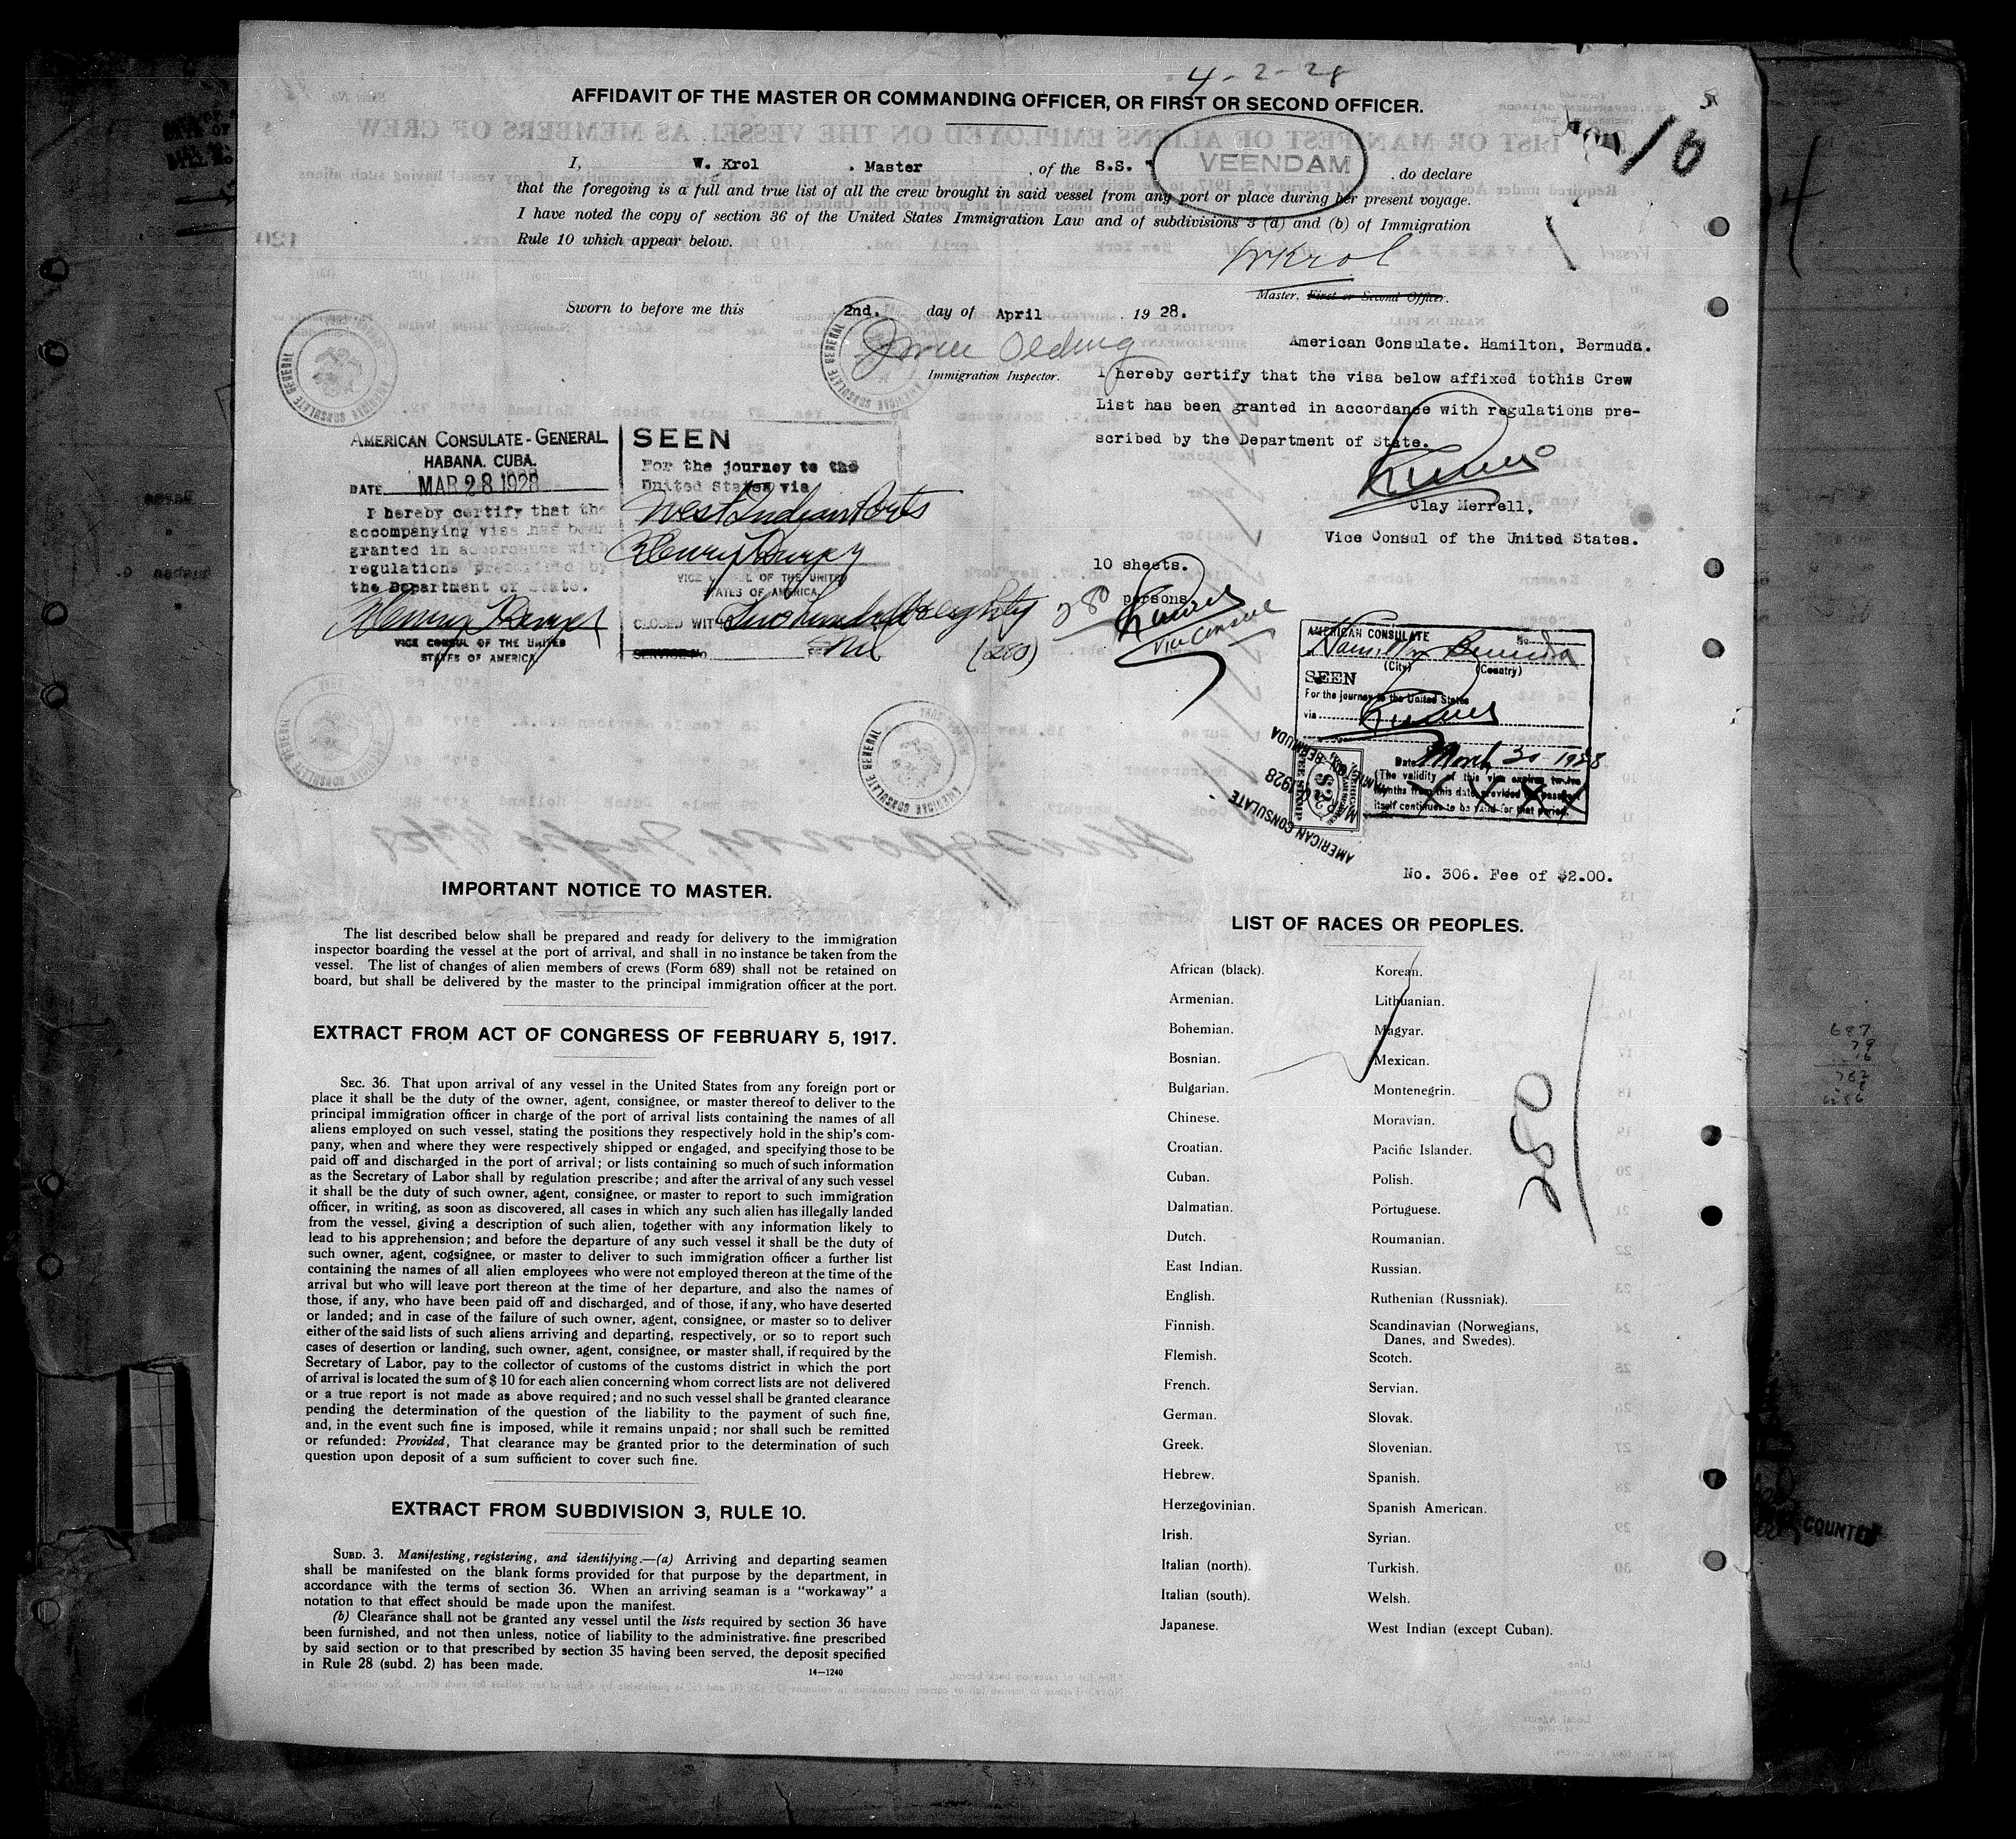 4-2-28
AFFIDAVIT OF THE MASTER OR COMMANDING OFFICER, OR FIRST OR SECOND OFFICER.
16
I, W. Krol, Master, of the S.S. " VEENDAM, do declare
that the foregoing is a full and true list of all the crew brought in said vessel from any port or place during her present voyage.
I have noted the copy of section 36 of the United States Immigration Law and of subdivisions 3 (a) and (b) of Immigration
Rule 10 which appear below.
WKrol
Master, First or Second Officer.
Sworn to before me this 2nd. day of April, 1928.
Immigration Inspector.
AMERICAN CONSULATE GENERAL
American Consulate. Hamilton, Bermuda.
I hereby certify that the visa below affixed tothis Crew
List has been granted in accordance with regulations pre-
scribed by the Department of State.
Clay Merrell,
Vice Consul of the United States.
10 sheets.
280 persons
Vice Consul
AMERICAN CONSULATE-GENERAL
HABANA. CUBA.
DATE MAR 28 1928
I hereby certify that the
accompanying visa has been
granted in accordance with
regulations prescribed by
the Department of State.
VICE CONSUL OF THE UNITED
STATES OF AMERICA.
SEEN
For the journey to the
United States via
West Indian Ports
VICE CONSUL OF THE UNITED
STATES OF AMERICA.
CLOSED WITH Two hundred & eighty
SERVICE No. Nil (280)
AMERICAN CONSULATE No.
Hamilton Bermuda
(City) (Country)
SEEN
For the journey to the United States
via
Date March 30 - 1928
(The validity of this visa expires twelve
months from this date provided the passport
itself continues to be valid for that period.
AMERICAN CONSULATE
No. 306. Fee of $2.00.
IMPORTANT NOTICE TO MASTER.
The list described below shall be prepared and ready for delivery to the immigration
inspector boarding the vessel at the port of arrival, and shall in no instance be taken from the
vessel. The list of changes of alien members of crews (Form 689) shall not be retained on
board, but shall be delivered by the master to the principal immigration officer at the port.
EXTRACT FROM ACT OF CONGRESS OF FEBRUARY 5, 1917.
SEC. 36. That upon arrival of any vessel in the United States from any foreign port or
place it shall be the duty of the owner, agent, consignee, or master thereof to deliver to the
principal immigration officer in charge of the port of arrival lists containing the names of all
aliens employed on such vessel, stating the positions they respectively hold in the ship's com-
pany, when and where they were respectively shipped or engaged, and specifying those to be
paid off and discharged in the port of arrival; or lists containing so much of such information
as the Secretary of Labor shall by regulation prescribe; and after the arrival of any such vessel
it shall be the duty of such owner, agent, consignee, or master to report to such immigration
officer, in writing, as soon as discovered, all cases in which any such alien has illegally landed
from the vessel, giving a description of such alien, together with any information likely to
lead to his apprehension; and before the departure of any such vessel it shall be the duty of
such owner, agent, cogsignee, or master to deliver to such immigration officer a further list
containing the names of all alien employees who were not employed thereon at the time of the
arrival but who will leave port thereon at the time of her departure, and also the names of
those, if any, who have been paid off and discharged, and of those, if any, who have deserted
or landed; and in case of the failure of such owner, agent, consignee, or master so to deliver
either of the said lists of such aliens arriving and departing, respectively, or so to report such
cases of desertion or landing, such owner, agent, consignee, or master shall, if required by the
Secretary of Labor, pay to the collector of customs of the customs district in which the port
of arrival is located the sum of $10 for each alien concerning whom correct lists are not delivered
or a true report is not made as above required; and no such vessel shall be granted clearance
pending the determination of the question of the liability to the payment of such fine,
and, in the event such fine is imposed, while it remains unpaid; nor shall such be remitted
or refunded: Provided, That clearance may be granted prior to the determination of such
question upon deposit of a sum sufficient to cover such fine.
EXTRACT FROM SUBDIVISION 3, RULE 10.
SUBD. 3. Manifesting, registering, and identifying.—(a) Arriving and departing seamen
shall be manifested on the blank forms provided for that purpose by the department, in
accordance with the terms of section 36. When an arriving seaman is a "workaway" a
notation to that effect should be made upon the manifest.
(b) Clearance shall not be granted any vessel until the lists required by section 36 have
been furnished, and not then unless, notice of liability to the administrative fine prescribed
by said section or to that prescribed by section 35 having been served, the deposit specified
in Rule 28 (subd. 2) has been made.
14—1240
LIST OF RACES OR PEOPLES.
African (black).
Armenian.
Bohemian.
Bosnian.
Bulgarian.
Chinese.
Croatian.
Cuban.
Dalmatian.
Dutch.
East Indian.
English.
Finnish.
Flemish.
French.
German.
Greek.
Hebrew.
Herzegovinian.
Irish.
Italian (north).
Italian (south).
Japanese.
Korean.
Lithuanian.
Magyar.
Mexican.
Montenegrin.
Moravian.
Pacific Islander.
Polish.
Portuguese.
Roumanian.
Russian.
Ruthenian (Russniak).
Scandinavian (Norwegians,
Danes, and Swedes).
Scotch.
Servian.
Slovak.
Slovenian.
Spanish.
Spanish American.
Syrian.
Turkish.
Welsh.
West Indian (except Cuban).
280